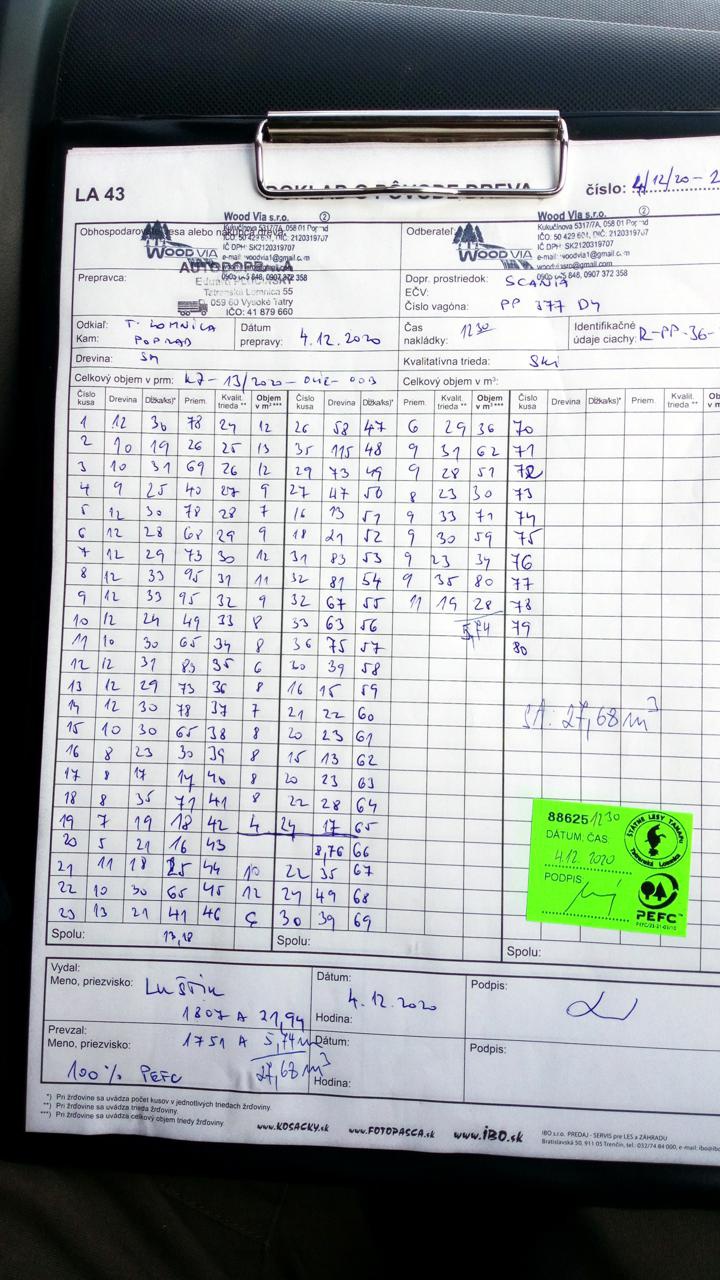 LA 43
DOKLAD O PÔVODE DREVA
číslo: 4/12/20-2
Obhospodarovateľ lesa alebo nákupca dreva:
Wood Via s.r.o. ②
Kukučínova 5317/7A, 058 01 Poprad
IČO: 50 429 601, DIČ: 2120319707
IČ DPH: SK2120319707
e-mail: woodvia1@gmail.com
WOOD VIA
0905 648, 0907 372 358
Odberateľ:
Wood Via s.r.o. ②
Kukučínova 5317/7A, 058 01 Poprad
IČO: 50 429 601, DIČ: 2120319707
IČ DPH: SK2120319707
e-mail: woodvia1@gmail.com
WOOD VIA
0907 372 358
Prepravca:
AUTODOPRAVA
Tatranská Lomnica 55
059 60 Vysoké Tatry
IČO: 41 879 660
Dopr. prostriedok: SCANIA
EČV:
Číslo vagóna: PP 377 DY
Odkiaľ: T. LOMNICA
Kam: POPRAD
Dátum prepravy: 4.12.2020
Čas nakládky: 12 30
Identifikačné údaje ciachy: R-PP-36-
Drevina: SM
Kvalitatívna trieda:
Celkový objem v prm: 13/2020-
Celkový objem v m³:
Číslo kusa Drevina Dĺžka/ks)* Priem. Kvalit. trieda ** Objem v m³ *** Číslo kusa Drevina Dĺžka/ks)* Priem. Kvalit. trieda ** Objem v m³ *** Číslo kusa Drevina Dĺžka/ks)* Priem. Kvalit. trieda ** Objem v m³ ***
1 12 30 78 24 12 26 58 47 6 29 36 70
2 10 19 26 25 13 35 115 48 9 31 62 71
3 10 31 69 26 12 29 73 49 9 28 51 72
4 9 25 40 27 9 27 47 50 8 23 30 73
5 12 30 78 28 7 16 13 51 9 33 71 74
6 12 28 68 29 9 18 21 52 9 30 59 75
7 12 29 73 30 12 31 83 53 9 23 34 76
8 12 33 95 31 11 32 81 54 9 35 80 77
9 12 33 95 32 9 32 67 55 11 19 28 78
10 12 24 49 33 8 33 63 56 5,74 79
11 10 30 65 34 8 36 75 57 80
12 12 31 83 35 6 30 39 58
13 12 29 73 36 8 16 15 59
14 12 30 78 37 7 21 22 60
15 10 30 65 38 8 20 23 61
16 8 23 30 39 8 15 13 62
17 8 17 17 40 8 20 23 63
18 8 35 71 41 8 22 28 64
19 7 19 18 42 4 24 17 65
20 5 21 16 43 8,76 66
21 11 18 25 44 10 22 35 67
22 10 30 65 45 12 24 49 68
23 13 21 41 46 30 39 69
27,68 m³
88625 12 30
DÁTUM, ČAS
4.12.2020
PODPIS
ŠTÁTNE LESY TANAPU
Tatranská Lomnica
PEFC™
Spolu: 13,18
Spolu:
Spolu:
Vydal:
Meno, priezvisko: LUŠTÍK
1807 A 21,94
Dátum: 4.12.2020
Hodina:
Podpis:
Prevzal:
Meno, priezvisko: 1751 A 5,74 m³
100% PEFC 27,68 m³
Dátum:
Hodina:
Podpis:
*) Pri žrďovine sa uvádza počet kusov v jednotlivých triedach žrďoviny.
**) Pri žrďovine sa uvádza trieda žrďoviny.
***) Pri žrďovine sa uvádza celkový objem triedy žrďoviny.
www.KOSACKY.sk www.FOTOPASCA.sk www.iBO.sk
IBO s.r.o. PREDAJ - SERVIS pre LES a ZÁHRADU
Bratislavská 50, 911 05 Trenčín, tel.: 032/74 84 000, e-mail: